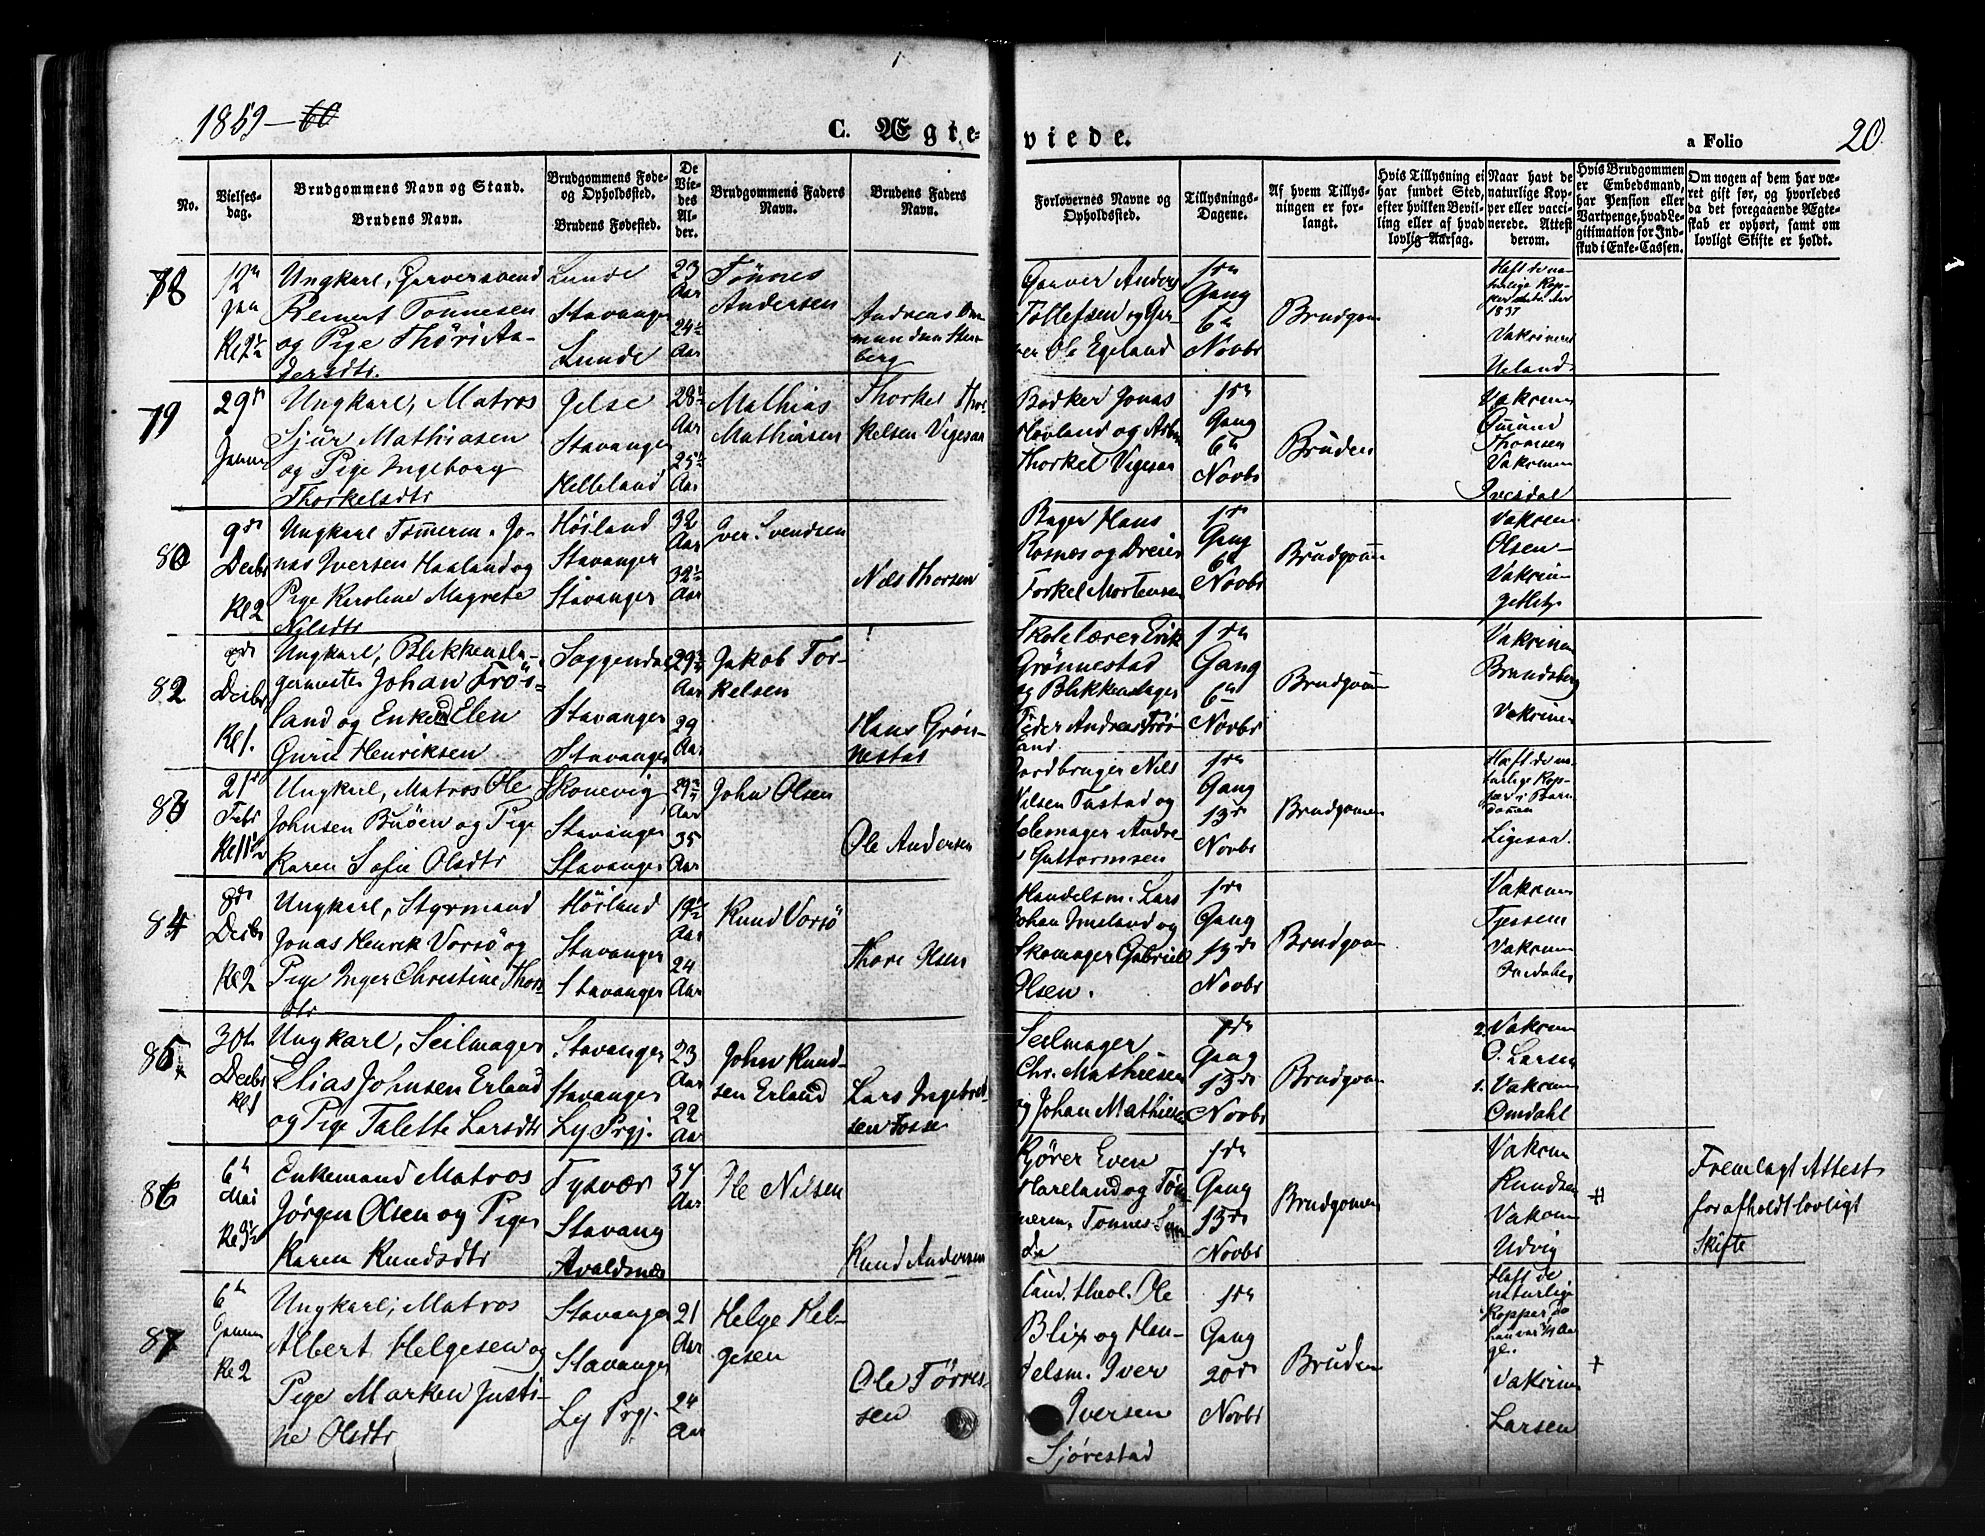 1859 - 60
C. Ægteviede.
a Folio
20
No.
Vielses-
dag.
Brudgommens Navn og Stand.
Brudens Navn.
Brudgommens Føde-
og Opholdssted.
Brudens Fødested.
De
Vie-
des
Al-
der.
Brudgommens Faders
Navn.
Brudens Faders
Navn.
Forlovernes Navne og
Opholdssted.
Tillysnings-
Dagene.
Af hvem Tillys-
ningen er for-
langt.
Hvis Tillysning ei
har fundet Sted,
efter hvilken Bevil-
ling eller af hvad
lovlig Aarsag.
Naar havt de
naturlige Kop-
per eller vacci-
nerede. Attest
derom.
Hvis Brudgommen
er Embedsmand,
har Pension eller
Vartpenge, hvad Le-
gitimation for Ind-
skud i Enke-Cassen.
Om nogen af dem har væ-
ret gift før, og hvorledes
da det foregaaende Ægte-
skab er ophørt, samt om
lovligt Skifte er holdt.
78
12te
Jan
Kl 2½
Ungkarl, Garversvend
Reinert Tonnesen
og Pige Thøri An-
dersdtr.
Lunde
Stavanger
Lunde
23
Aar
24½
Aar
Tönnes
Andersen
Andreas
berg
Garver Anders
Tollefsen og Gar-
ver Ole Egeland
1ste
Gang
6te
Novbr
Brudgom
Haft de na-
turlige Kop-
1837
Vakcineret
Ueland
79
29de
Ungkarl, Matros
Sjur Mathiasen
og Pige Ingeborg
Thorkelsdtr
Jelse
Stavanger
Helleland
28½
Aar
25½
Aar
Mathias
Mathiasen
Thorkel Thor-
kelsen Vigesaa
Bødker Jonas
Hovland og
Thorkel Vigesaa
1ste
Gang
6te
Novbr
Bruden
Thomsen
80
9de
Decbr
Kl 2
Ungkarl Tømmerm. Jo-
nas Iversen Haaland og
Pige Karoline Magrete
Nilsdtr
Höiland
Stavanger
Stavanger
32
Aar
32½
Aar
Iver Svendsen
Nils Thorsen
Bager Hans
Rosnæs og Dreier
Torkel Mortensen
1ste
Gang
6te
Novbr
Brudgom
Olsen
82
Decbr
Kl 1.
Ungkarl, Blikkensla-
germester Johan Frös-
land og Enken Elen
Gurie Henriksen
Soggendal
Stavanger
Stavanger
29½
Aar
29
Aar
Jakob Tor-
kelsen
Hans Grön-
nestad
Skolelærer Erik
Grønnestad
og Blikkenslager
Peder Andreas Frös-
land
1ste
Gang
6te
Novbr
Brudgom
Brandsberg
83
21de
Febr
Kl 11½
Ungkarl, Matros Ole
Johnsen Buöen og Pige
Karen Sofie Olsdtr
Skonevig
Stavanger
Stavanger
Aar
35
Aar
John Olsen
Ole Andersen
Jordbruger Nils
Nilsen Tastad og
Guttormsen
1ste
Gang
13de
Novbr
Brudgomen
Haft de na-
turlige Kop-
84
8de
Decbr
Kl 2
Ungkarl, Styrmand
Jonas Henrik Vorsö og
Pige Inger Christine Thors-
dtr
Höiland
Stavanger
Stavanger
19½
Aar
24
Aar
Knud Vorsö
Thore Olsen
Handelsm. Lars
Johan Imeland og
Skomager Gabriel
Olsen.
1ste
Gang
13de
Novbr
Brudgom
Tjessem
85
30te
Decbr
Kl 1
Ungkarl, Seilmager
Elias Johnsen Erland
og Pige Talette Larsdtr
Stavanger
Stavanger
Ly Prgj.
23
Aar
22
Aar
John Knud-
sen Erland
Lars Ingebret-
sen Fosse
Seilmager
Chr. Mathiesen
og Johan Mathiesen
1ste
Gang
13de
Novbr
Brudgom
2. Vakcin
O. Larsen
1. Vakcin
Omdahl
86
6te
Mai
Enkemand Matros
Jørgen Olsen og Pige
Karen Knudsdtr
Tysvær
Stavang
Avaldsnæs
34
Aar
Ole Nilsen
Knud Andersen
Kjører Even
Hareland og Töm-
merm. Tönnes
1ste
Gang
13de
Novbr
Brudgomen
Vakcin
Knudsen
Vakcin
Udvig
Fremlagt Attest
for afholdt lovligt
Skifte
87
6te
Kl 2
Ungkarl, Matros
Albert Helgesen og
Pige Marken Justi-
ne Olsdtr
Stavanger
Stavanger
Ly Prgj.
21
Aar
24
Aar
Helge Hel-
gesen
Ole Törres-
sen
Cand. theol. Ole
Blix og Han-
delsm. Iver
Iversen
Sjørestad
1ste
Gang
20de
Novbr
Bruden
Haft de
naturlige
Kopper
Vakcineret
Larsen